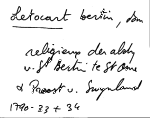 Letocart bertin, dom
religieus der abdij
v. St Bertin te St Omer
& Proost v. Swynland
1790 - 33 + 34